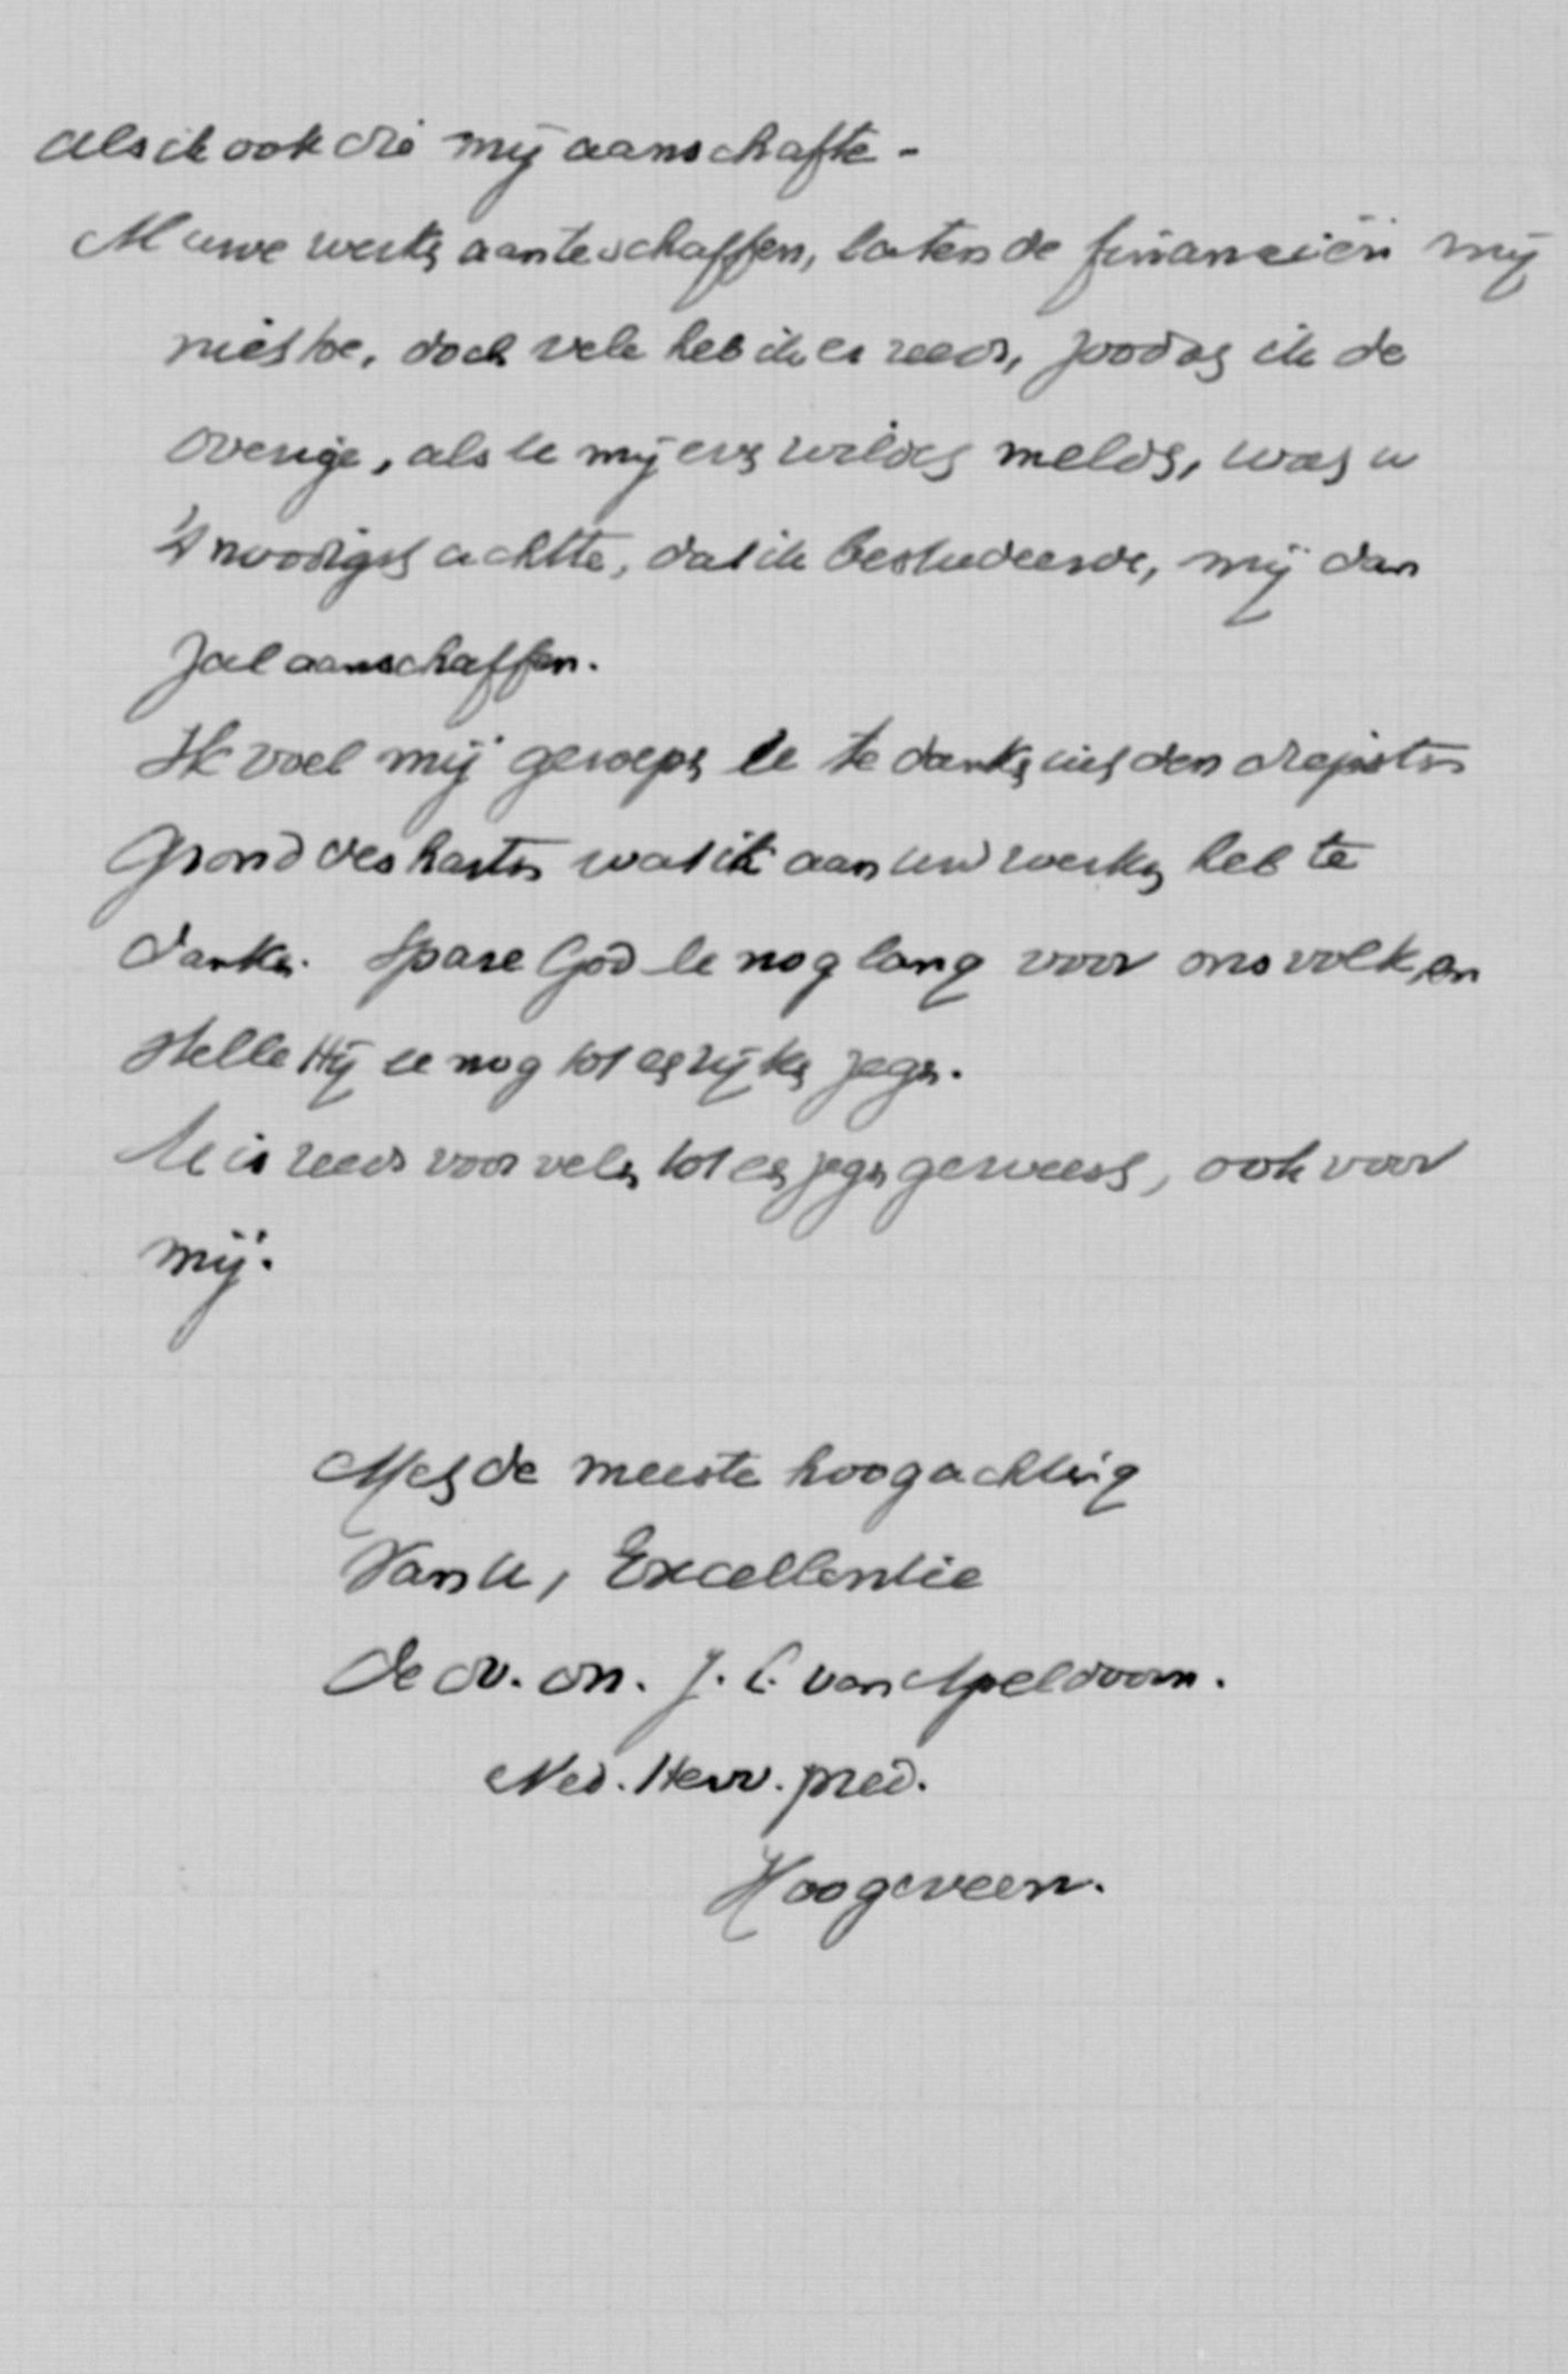 als ik ook die mij aanschafte -
Al uwe werken aan te schaffen, laten de financiën mij
niet toe, doch vele heb ik er reeds, zoodat ik de
overige, als U mij even wildet melden, wat u
't noodigst achtte, dat ik bestudeerde, mij dan
zal aanschaffen.
Ik voel mij geroepen U te danken uit den diepsten
grond des harten wat ik aan uw werken heb te
danken. Spare God U nog lang voor ons volk, en
stelle Hij U nog tot een rijken zegen.
U is reeds voor velen tot een zegen geweest, ook voor
mij.
Met de meeste hoogachting
Van U, Excellentie
de dv. dn. J. C. van Apeldoorn.
Ned. Herv. pred.
Hoogeveen.